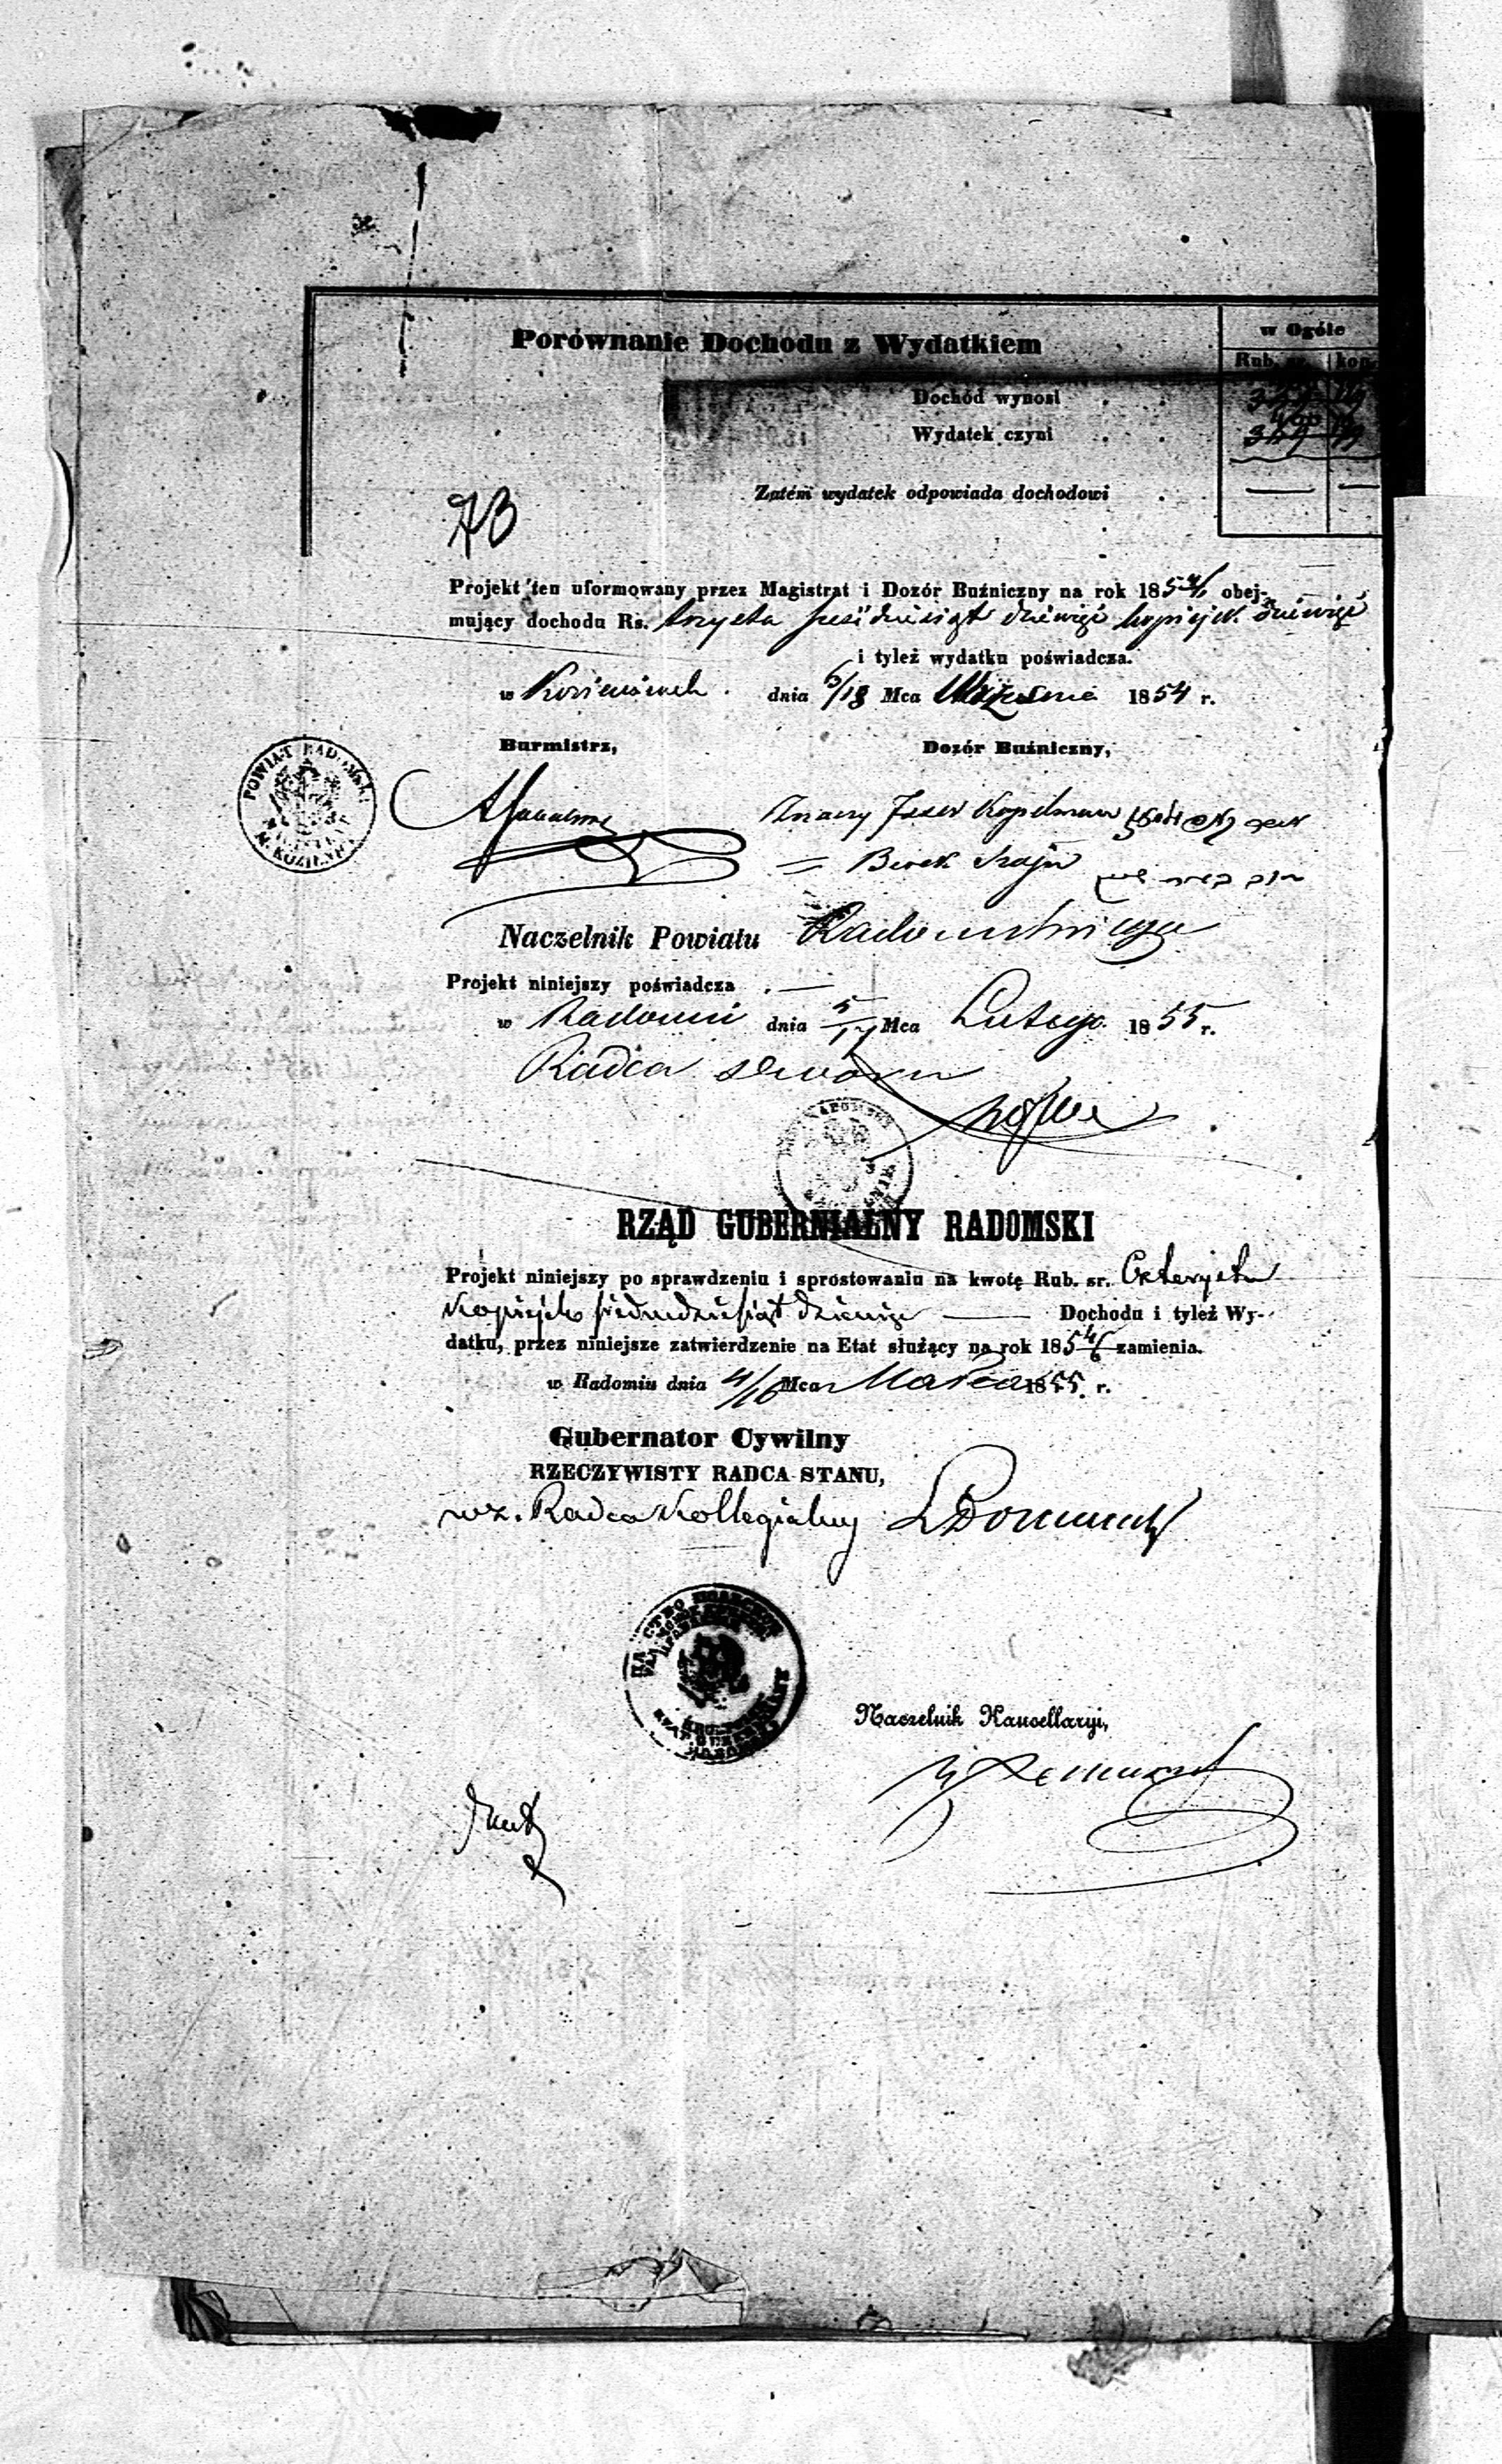 Porównanie Dochodu z Wydatkiem
w Ogóle
Rub. sr. kop.
Dochód wynosi
Wydatek czyni
Zatém wydatek odpowiada dochodowi
Projekt ten uformowany przez Magistrat i Dozór Buźniczny na rok 185 obej-
mujący dochodu Rs. trzysta sześćdziesiąt dziewięć kopiejek dziewięć
i tyleż wydatku poświadcza.
w Kozienicach dnia 6/18 Mca Września 1854 r.
Burmistrz, Dozór Buźniczny,
POWIAT RADOMSKI
Icser Kopelman
Berek Szaja
Naczelnik Powiatu Radomskiego
Projekt niniejszy poświadcza
w Radomiu dnia 5/17 Mca Lutego 1855 r.
Radca Dworu
RZĄD GUBERNIALNY RADOMSKI
Projekt niniejszy po sprawdzeniu i sprostowaniu na kwotę Rub. sr. Czterysta
Kopiejek siedmdziesiąt dziewięć Dochodu i tyleż Wy-
datku, przez niniejsze zatwierdzenie na Etat służący na rok 185 4/6 zamienia.
w Radomiu dnia 4/16 Mca Marca 1855 r.
Gubernator Cywilny
RZECZYWISTY RADCA STANU,
wz. Radca Kollegialny
Naczelnik Kancellaryi,